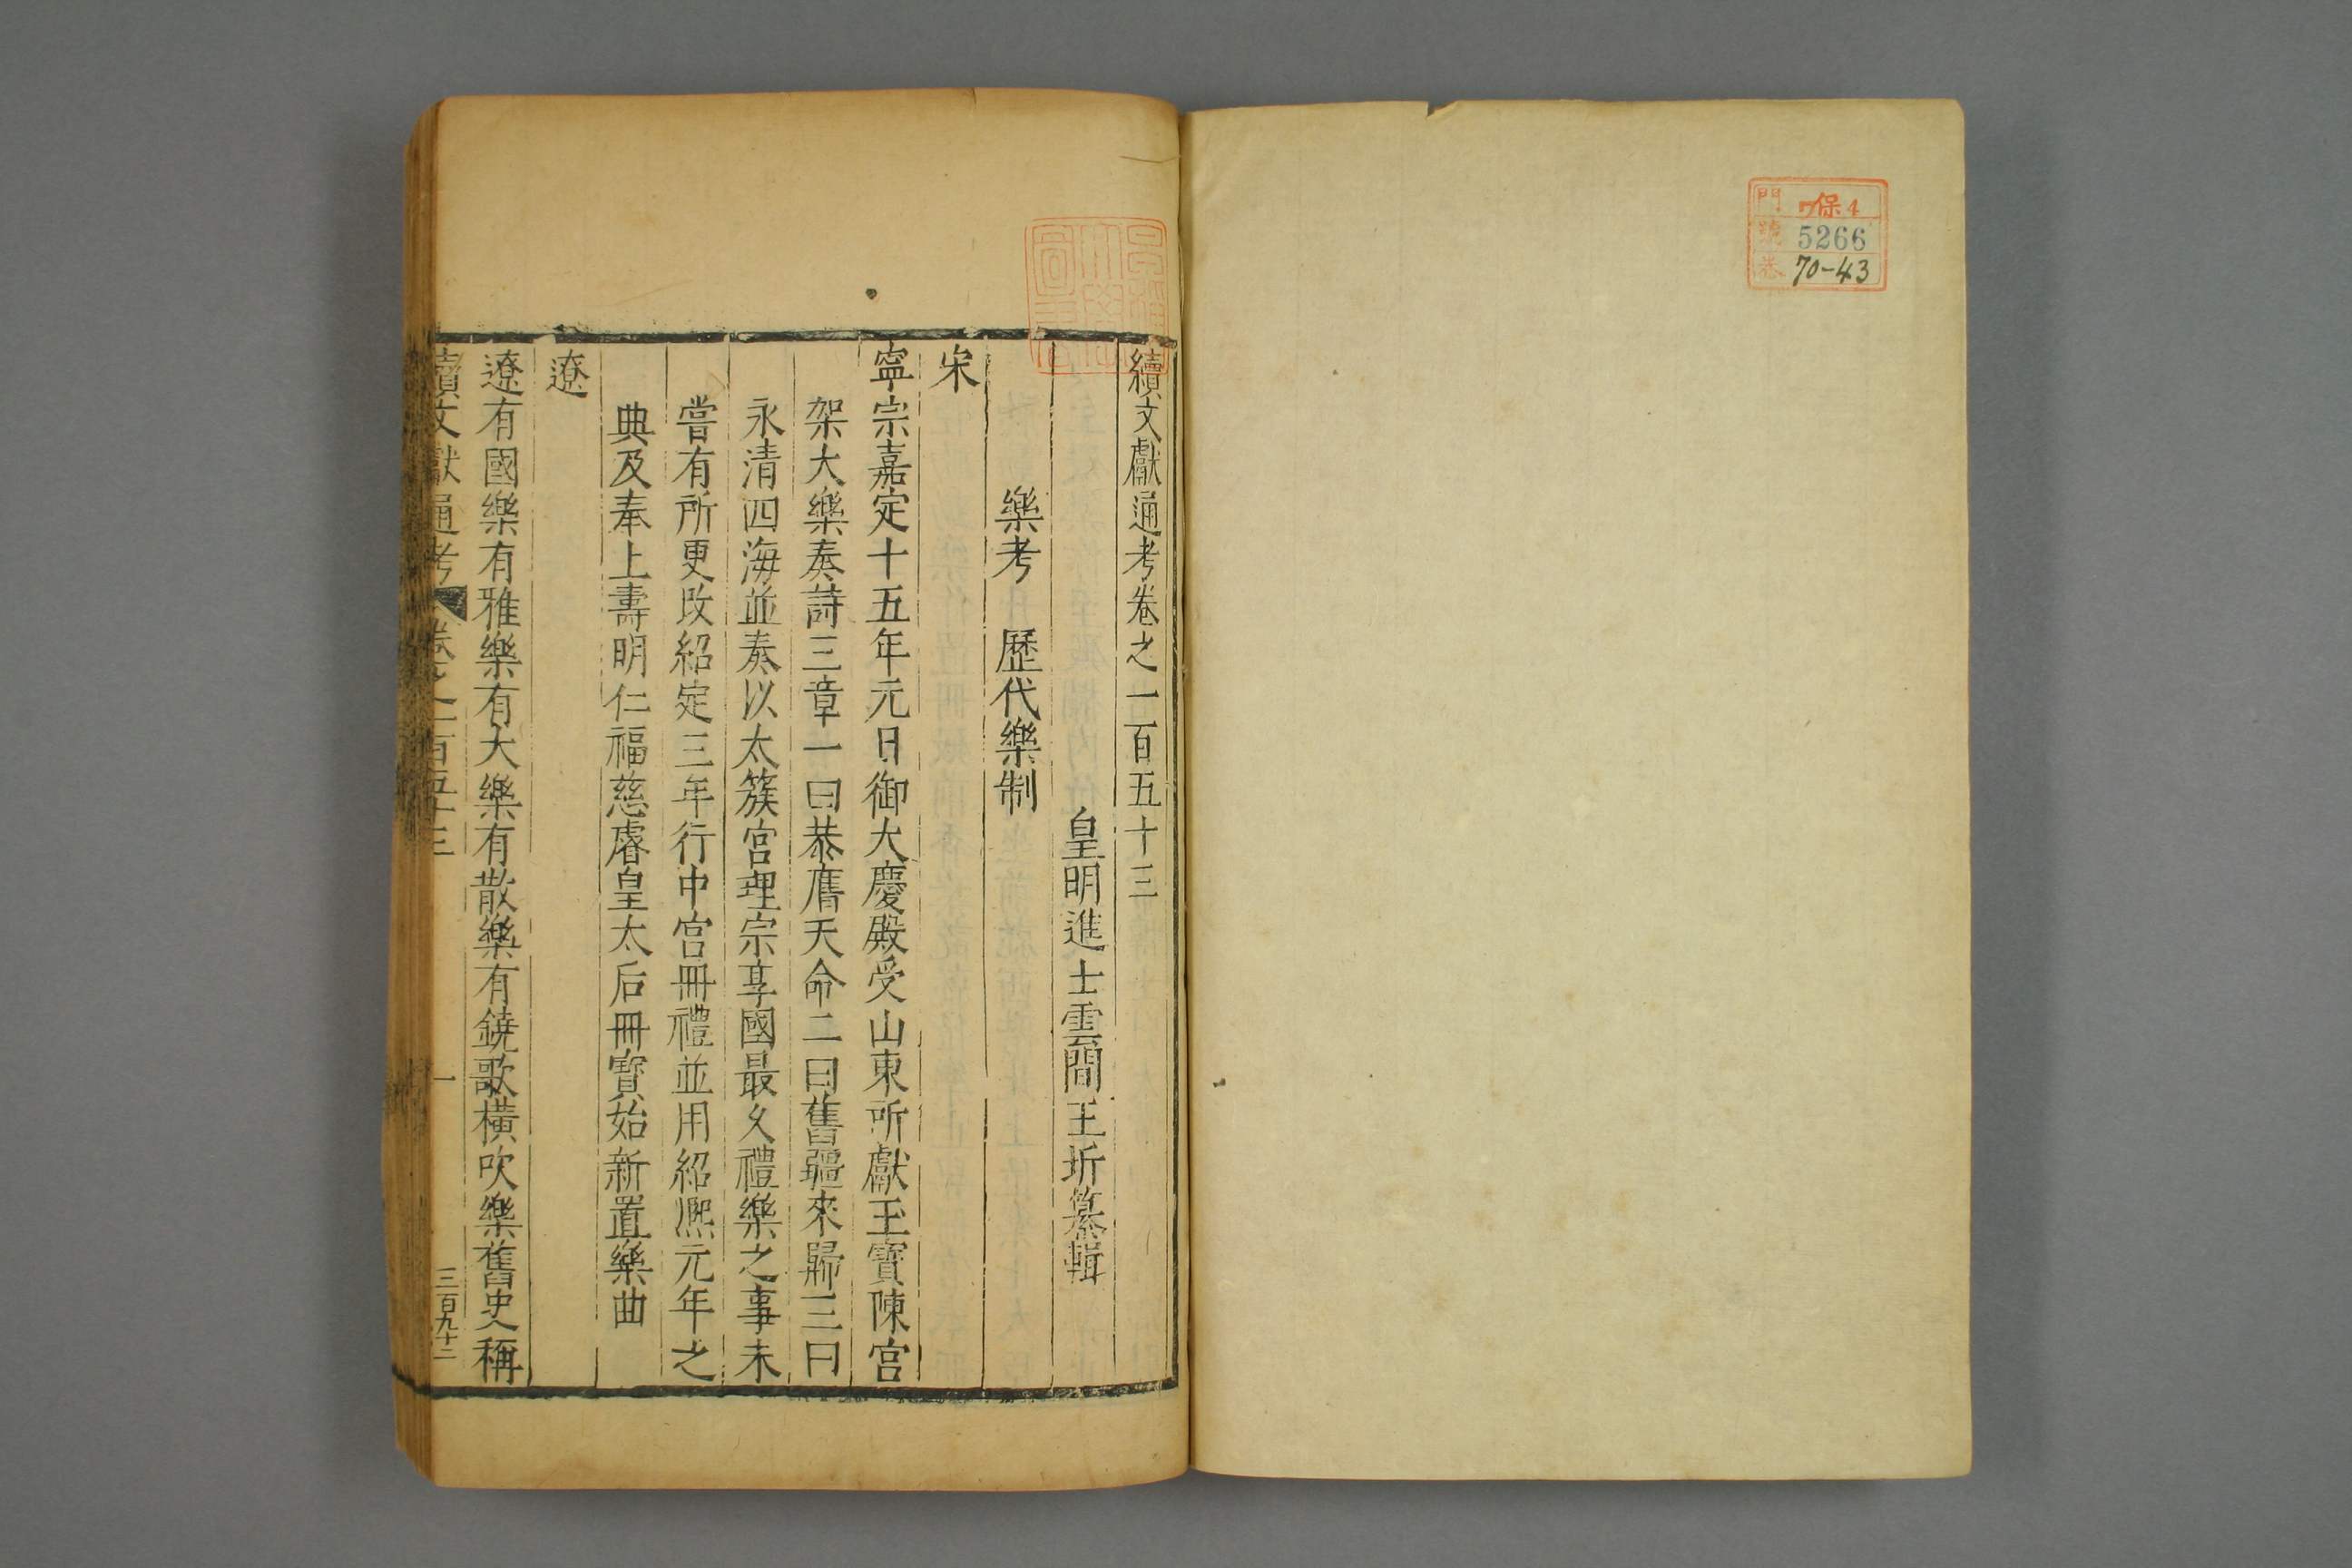 門 保4
號 5266
卷 70-43
續文獻通考卷之一百五十三
皇明進士雲間王圻纂輯
樂考 歷代樂制
宋
寧宗嘉定十五年元日御大慶殿受山東所獻玉寶陳宮
架大樂奏詩三章一曰恭膺天命二曰舊疆來歸三曰
永清四海並奏以太簇宮理宗享國最久禮樂之事未
嘗有所更改紹定三年行中宮冊禮並用紹熈元年之
典及奉上壽明仁福慈睿皇太后冊寶始新置樂曲
遼
遼有國樂有雅樂有大樂有散樂有鐃歌橫吹樂舊史稱
續文獻通考 卷之一百五十三 一 三百九十二